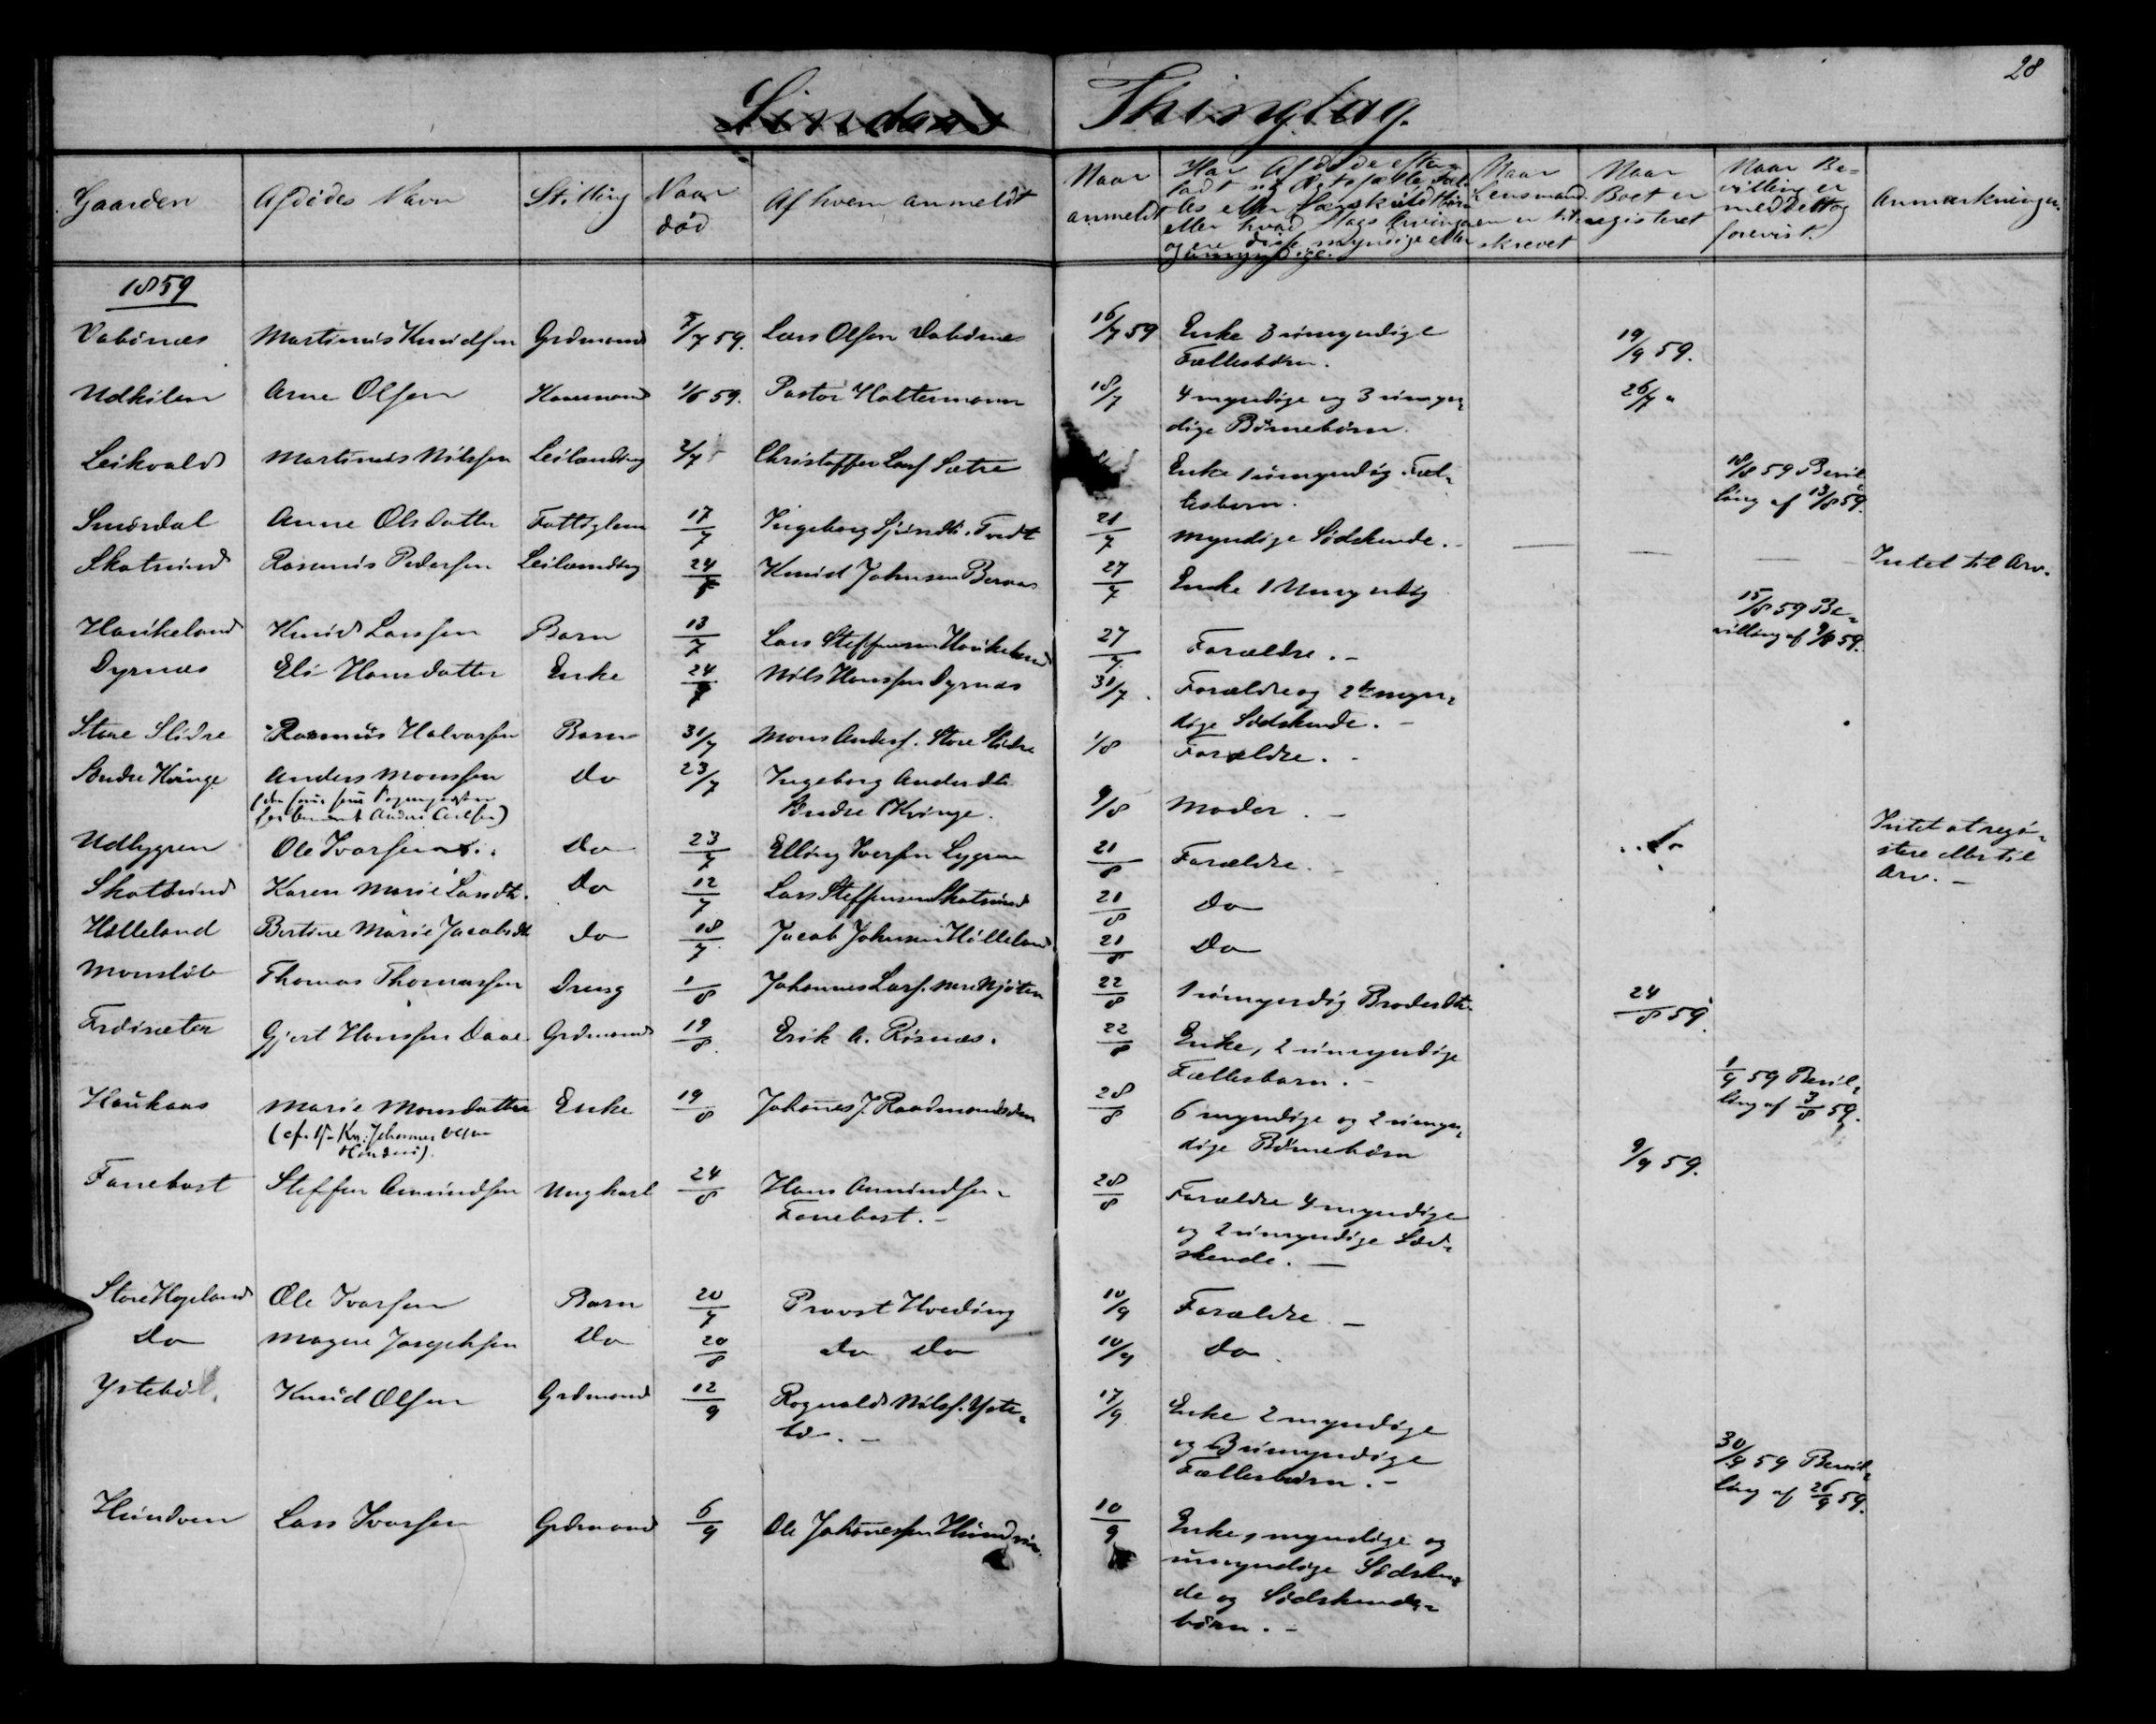 28
Lindaas Thinglag.
Gaarden Afdødes Navn Stilling Naar død Af hvem anmeldt Naar anmeldt Har Afdøde efterladt sig Ægtefælle, Fælles eller Særskildtbørn eller hvad Slags Arvinger og ere disse myndige eller umyndige. Naar Lensmanden er tilskrevet Naar Boet er registeret Naar Bevilling er meddelt og forevist. Anmærkninger.
1859
Martinus Knudsen Grdmand 5/7 59. Lars Olsen 16/7 59 Enke 3 umyndige
Fællesbørn. 19/9 59.
Udkilen Arne Olsen Kaarmand 1/6 59. Pastor Haltermann 18/7 4 myndige og 3 umyn-
dige Børnebørn. 26/7 "
Leikvold Martinus Nilssen Leilænding 2/7 Christoffer Larss Sætre Enke 1 umyndig Fæl-
lesbarn. 18/8 59 Bevil-
ling af 13/8 59.
Smørdal Anne Olsdatter Fattiglem 17/7 Ingeborg Tvedt 21/7 Myndige Sødskende. — — — Intet til Arv.
Skatrund Rasmus Pedersen Leilænding 24/7 Knud Johnsen Bernæs 27/7 Enke 1 Umyndig
15/8 59 Be-
villing af 9/8 59.
Haukeland Knud Larssen Barn 13/7 Lars Steffensen Haukeland 27/7 Forældre. —
Dyrnæs Eli Hansdatter Enke 24/7 Nils Hanssen Dyrnæs 31/7. Forældre og 2 umyn-
dige Sødskende. —
Store Slidre Rasmus Halvorsen Barn 31/7 Mons Anderss. Store Slidre 1/8 Forældre. -
Søndre Kvinge Anders Monssen do 23/7 Ingeborg Andersdtr
Søndre Kvinge. 9/8 Moder. —
Udlygren Ole Ivarsen do 23/7 Elling Iversen Lygren 21/8 Forældre. — Intet at regi-
stere eller til
Arv. —
Skatrund Karen Marie Larsdtr. do 12/7 Lars Steffensen Skatrund 21/8 do
Hølleland Bertine Marie Jacobsdtr do 18/7. Jacob Johnsen Hølleland 21/8 do
Monsløb Thomas Thomassen Dreng 1/8 Johannes Larss. 22/8 1 umyndig Broderdtr. 24/8 59.
Gjert Hanssen Daae. Grdmand 19/8. Erik A. Risnæs. 22/8 Enke, 2 umyndige
Fællesbarn. — 1/9 59 Bevil-
ling af 3/8 59.
Haukaas Marie Monsdatter Enke 19/8 Johannes J. 28/8 6 myndige og 2 umyn-
dige Børnebørn 9/9 59.
Fonnebost Steffen Amundsen Ungkarl 24/8 Hans Amundsen
Fonnebost. — 28/8 Forældre 4 myndige
og 2 umyndige Sød-
skende. —
Store Hopland Ole Ivarsen Barn 20/7 Provst Hveding 10/9 Forældre —
Do Magne Josephsen do 20/8 do do 10/9 do
Ystebø Knud Olsen Grdmand 12/9 Rognald Nilss. Yste-
bø. — 17/9. Enke 2 myndige
og 3 umyndige
Fællesbørn. — 30/9 59 Bevil-
ling af 26/9 59.
Hundven Lars Ivarsen Grdmand 6/9 Ole Johannessen Hundven. 10/9 Enke, myndige og
umyndige Sødsken-
de og Sødskende-
børn. —